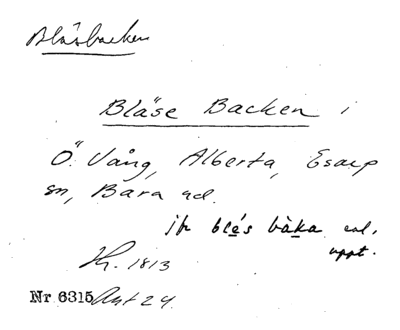 Blåsbacken
Bläse Backen i
Ö. Vång, Alberta, Esarp
sn, Bara hd.
jfr blés bàka enl.
uppt.
1813
Nr 6315 Akt 24.